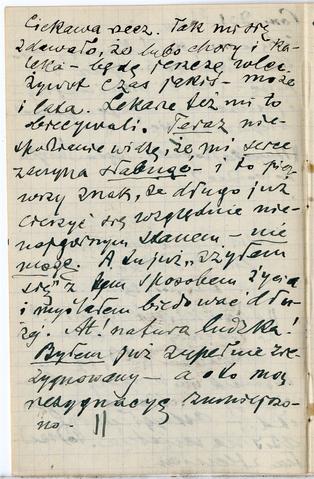 Ciekawa rzecz. Tak mi się
zdawało, że lubo chory i ka-
leka – będę jeszcze wlec
żywot czas jakiś – może
i lata. Lekarze też mi to
obiecywali. Teraz nie-
spodzianie widzę, że mi serce
zaczyna słabnąć – i to pier-
wszy znak, że długo już
cieszyć się względnie nie-
najgorszym stanem – nie
mogę. A tu już „zżyłem
się” z tym sposobem życia
i myślałem biedować dłu-
żej. At! natura ludzka!
Byłem już zupełnie zre-
zygnowany – a oto mą
rezygnację zmniejszo-
no –